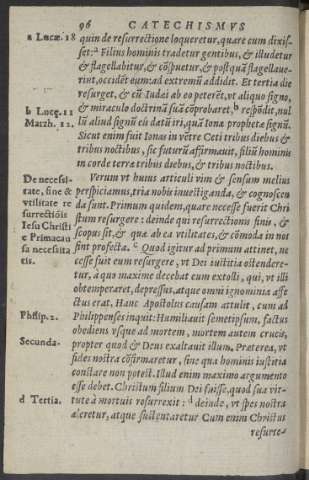 96 CATECHISMVS
a Lucæ. 18
quin de resurrectione loqueretur, quare cum dixis-
set: a Filius hominis tradetur gentibus, & illudetur
& flagellabitur, & cōspuetur, & postquā flagellaue-
rint, occidēt eum: ad extremū addidit. Et tertia die
resurget, & cū Iudæi ab eo peterēt, vt aliquo signo,
b Luce. 11
Matth. 12.
& miraculo doctrinā suā cōprobaret, b respōdit, nul
lū aliud signū eis datū iri, quā Ionæ prophetæ signū.
Sicut enim fuit Ionas in vētre Ceti tribus diebus &
tribus noctibus, sic futurū affirmauit, filiū hominis
in corde terræ tribus diebus, & tribus noctibus.
De necessi-
tate, fine &
vtilitate re
surrectiōis
Iesu Christi
e Primacau
sa necessita
tis.
Verum vt huius articuli vim & sensum melius
perspiciamus, tria nobis inuestiganda, & cognoscen
da sunt. Primum quidem, quare necesse fuerit Chri
stum resurgere: deinde qui resurrectionis finis, &
scopus sit, & quæ ab ea vtilitates, & cōmoda in nos
sint profecta. c Quod igitur ad primum attinet, ne
cesse fuit eum resurgere, vt Dei iustitia ostendere-
tur, à quo maxime decebat eum extolli, qui, vt illi
obtemperaret, depressus, atque omni ignominia affe
ctus erat. Hanc Apostolus causam attulit, cum ad
Philip. 2.
Philippenses inquit: Humiliauit semetipsum, factus
obediens vsque ad mortem, mortem autem crucis,
Secunda.
propter quod & Deus exaltauit illum. Præterea, vt
fides nostra cōfirmaretur, sine qua hominis iustitia
constare non potest. Illud enim maximo argumento
esse debet. Christum filium Dei fuisse, quod sua vir-
d Tertia.
tute à mortuis resurrexit: d deinde, vt spes nostra
aleretur, atque sustentaretur Cum enim Christus
resurre-